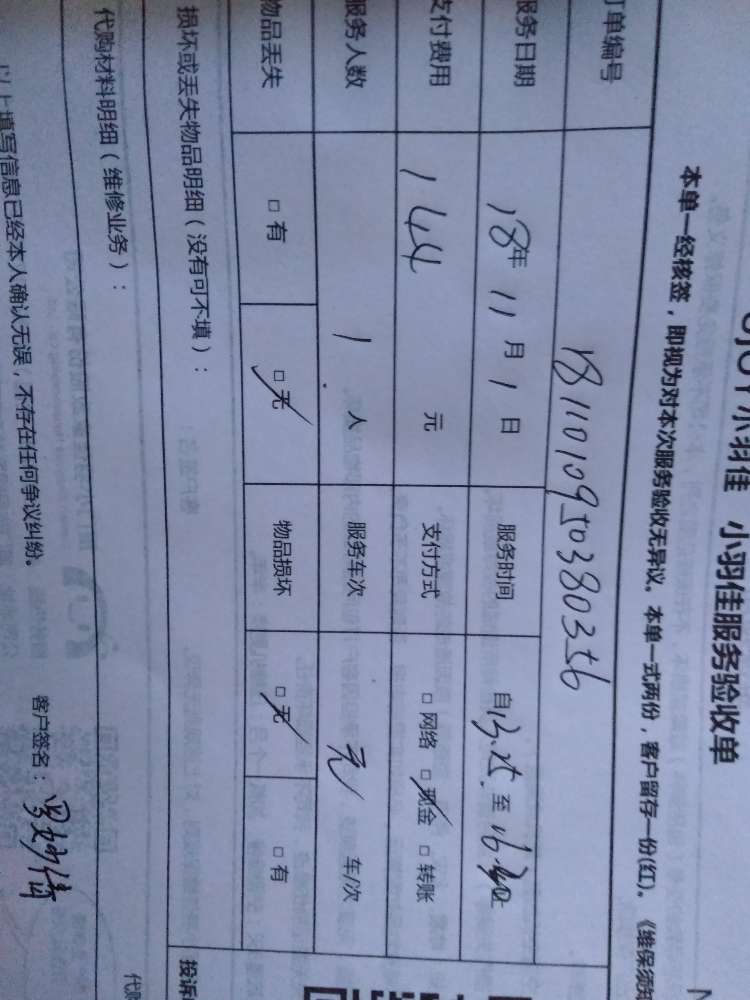 小羽佳 小羽佳服务验收单
本单一经核签，即视为对本次服务验收无异议。本单一式两份，客户留存一份(红)。《维保须知
订单编号 1811010950380356
服务日期 18年11月1日 服务时间 自13.25至16
支付费用 144元 支付方式 □网络 □现金 □转账
服务人数 1人 服务车次 无 车/次
物品丢失 □有 □无 物品损坏 □无 □有
损坏或丢失物品明细（没有可不填）： 投诉
代购材料明细（维修业务）： 代购
以上填写信息已经本人确认无误，不存在任何争议纠纷。 客户签名：